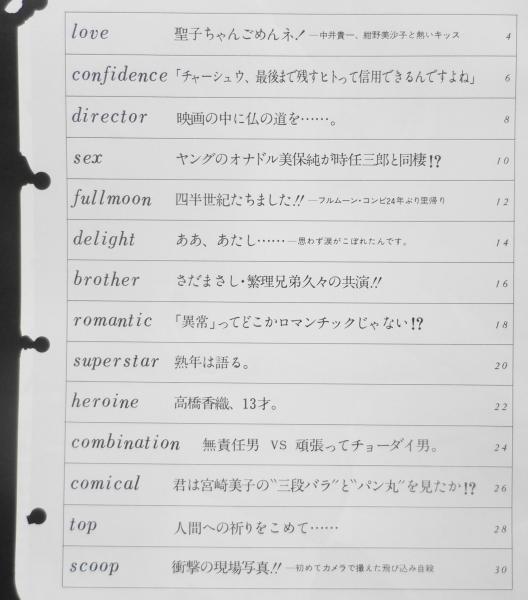 love 聖子ちゃんごめんネ! —中井貴一、紺野美沙子と熱いキッス 4
confidence 「チャーシュウ、最後まで残すヒトって信用できるんですよね」 6
director 映画の中に仏の道を……。 8
sex ヤングのオナドル美保純が時任三郎と同棲!? 10
fullmoon 四半世紀たちました!! —フルムーン・コンビ24年ぶり里帰り 12
delight ああ、あたし……—思わず涙がこぼれたんです。 14
brother さだまさし・繁理兄弟久々の共演!! 16
romantic 「異常」ってどこかロマンチックじゃない!? 18
superstar 熟年は語る。 20
heroine 高橋香織、13才。 22
combination 無責任男 VS 頑張ってチョーダイ男。 24
comical 君は宮崎美子の〝三段バラ〟と〝パン丸〟を見たか!? 26
top 人間への祈りをこめて…… 28
scoop 衝撃の現場写真!! —初めてカメラで撮えた飛び込み自殺 30